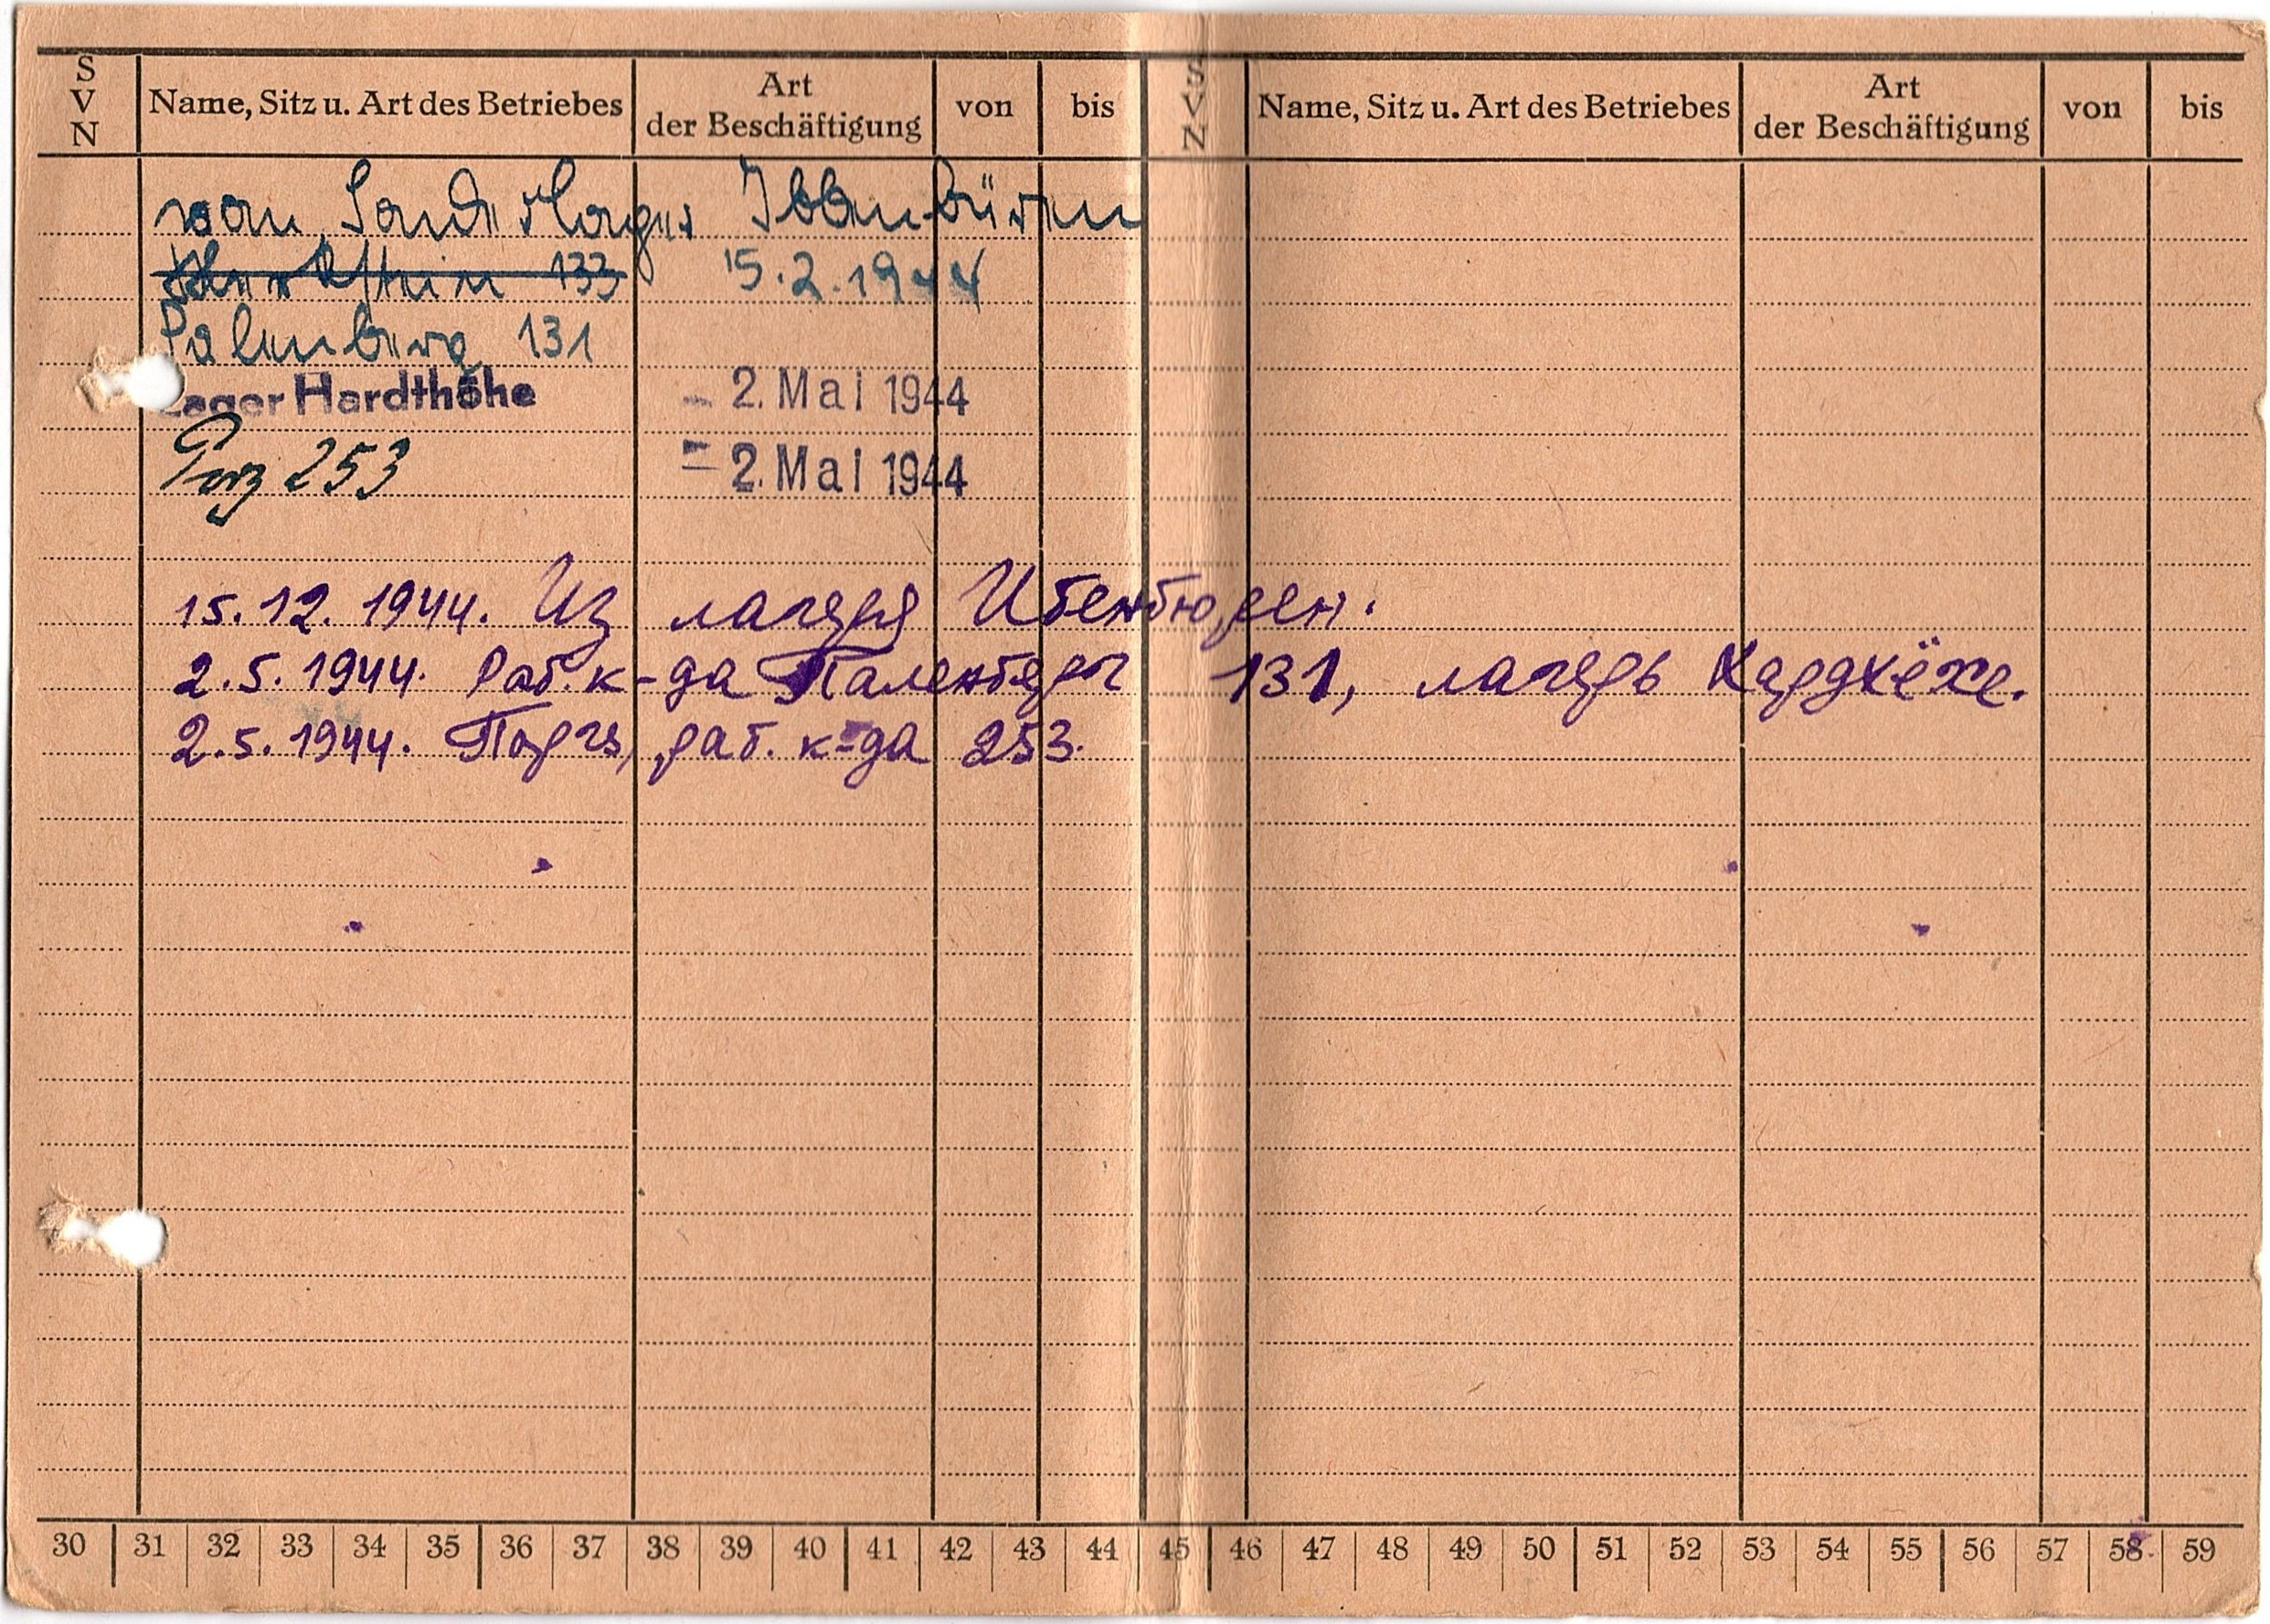 S V N Name, Sitz u. Art des Betriebes Art der Beschäftigung von bis S V N Name, Sitz u. Art des Betriebes Art der Beschäftigung von bis
von Sonderlager Ibbenbüren
133 15.2.1944
Palenberg 131
Lager Hardthöhe - 2. Mai 1944
Porz 253 - 2. Mai 1944
15.12.1944. Из лагеря Ибенбюрен.
2.5.1944. Раб. к-да Паленберг 131, лагерь Хардхёхе.
2.5.1944. Порц, раб. к-да 253.
30 31 32 33 34 35 36 37 38 39 40 41 42 43 44 45 46 47 48 49 50 51 52 53 54 55 56 57 58 59